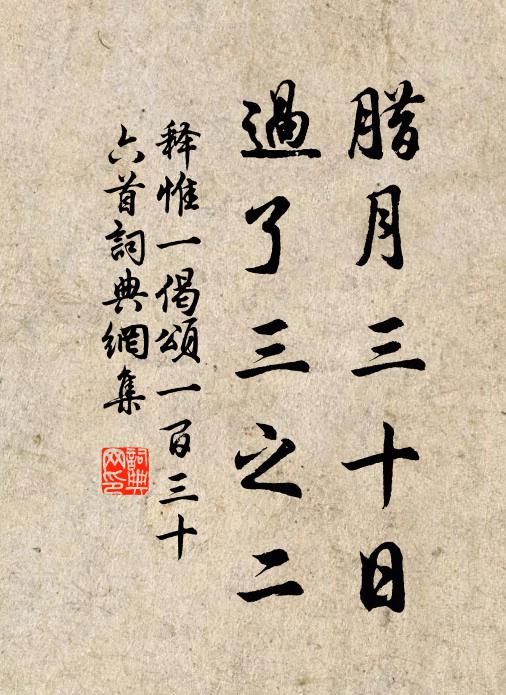 腊月三十日
過了三之二
释惟一偈頌一百三十
六首詞典網集
詞典
网印